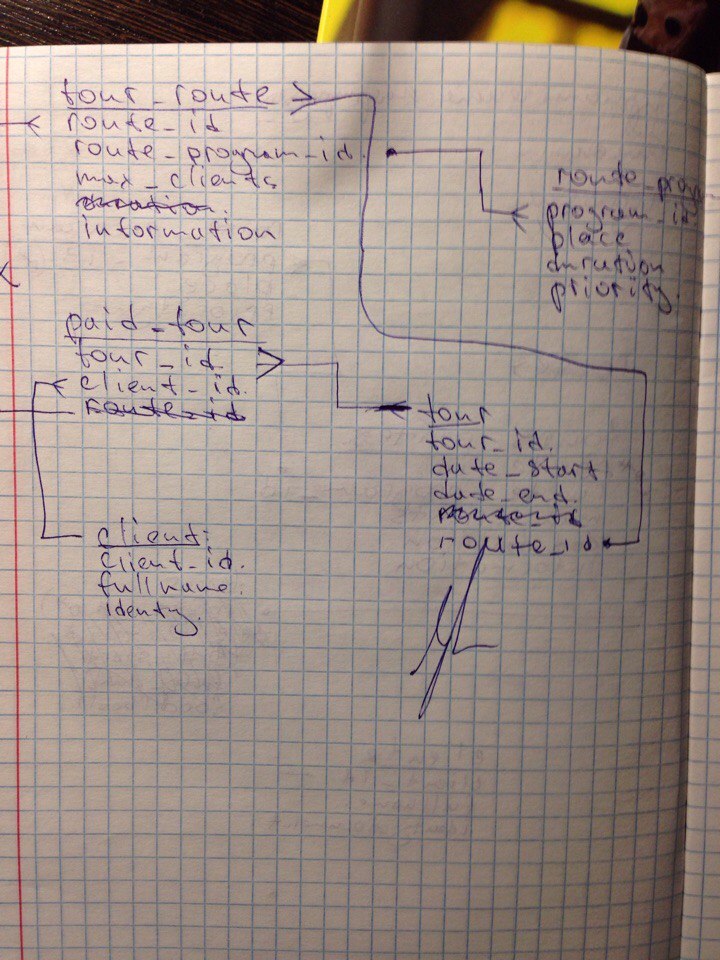 tour_route
route_id
route_program_id.
max_clients
duration.
information
route_prog
program_id
place
duration
priority.
paid_tour
tour_id.
client_id.
route_id
tour
tour_id.
date_start
date_end.
route_id
route_id
client:
client_id.
fullname.
identy.